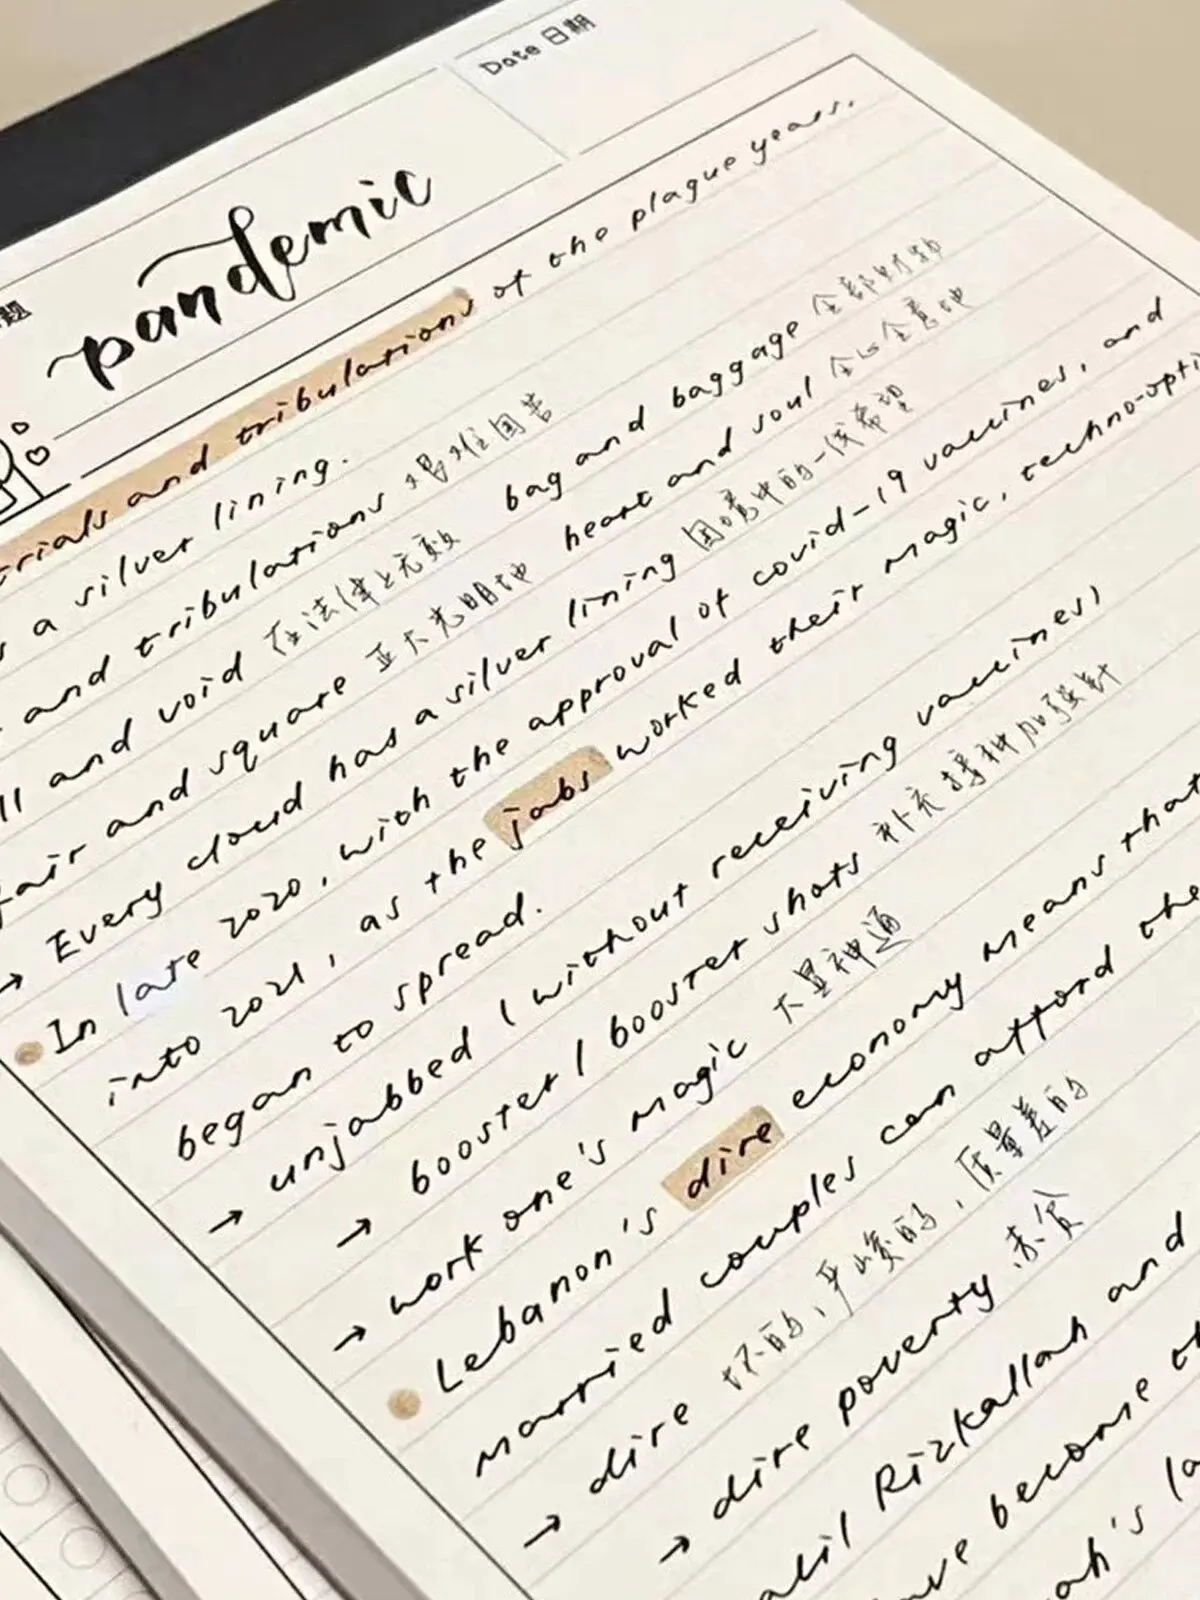 Date 日期
题
pandemic
trials and tribulations of the plague years.
a silver lining.
and tribulations 艰难困苦 bag and baggage 全部财物
and void 在法律上无效 heart and soul 全心全意地
fair and square 正大光明地
→ Every cloud has a silver lining 困境中的一线希望
In late 2020, with the approval of covid-19 vaccines, and
into 2021, as the jabs worked their magic, techno-opti
began to spread.
→ unjabbed (without receiving vaccines)
→ booster / booster shots 补充接种加强针
→ work one's magic 大显神通
Lebanon's dire economy means that
married couples can afford the
→ dire 坏的,严峻的,质量差的
→ dire poverty 赤贫
Rizkallah and
become
ah's